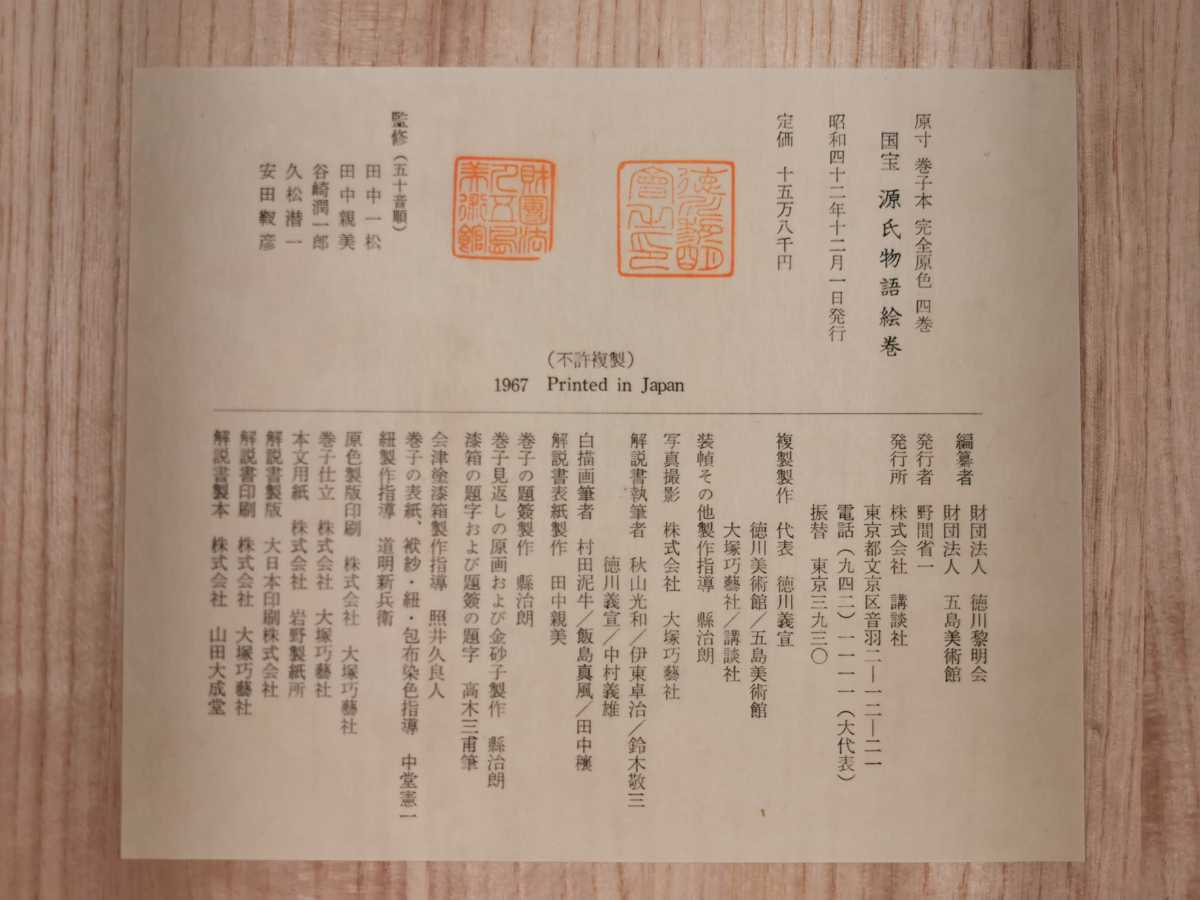 原寸 巻子本 完全原色 四巻
国宝 源氏物語絵巻
昭和四十二年十二月一日発行
定価 十五万八千円
財團法人五島美術館
監修(五十音順)
田中一松
田中親美
谷崎潤一郎
久松潜一
安田靫彦
(不許複製)
1967 Printed in Japan
編纂者 財団法人 徳川黎明会
財団法人 五島美術館
発行者 野間省一
発行所 株式会社 講談社
東京都文京区音羽二―一二―二一
電話(九四二)一一一一(大代表)
振替 東京三九三〇
複製製作 代表 徳川義宣
徳川美術館/五島美術館
大塚巧藝社/講談社
装幀その他製作指導 縣治朗
写真撮影 株式会社 大塚巧藝社
解説書執筆者 秋山光和/伊東卓治/鈴木敬三
徳川義宣/中村義雄
白描画筆者 村田泥牛/飯島真風/田中穰
解説書表紙製作 田中親美
巻子の題簽製作 縣治朗
巻子見返しの原画および金砂子製作 縣治朗
漆箱の題字および題簽の題字 高木三甫筆
会津塗漆箱製作指導 照井久良人
巻子の表紙、袱紗・紐・包布染色指導 中堂憲一
紐製作指導 道明新兵衛
原色製版印刷 株式会社 大塚巧藝社
巻子仕立 株式会社 大塚巧藝社
本文用紙 株式会社 岩野製紙所
解説書製版 大日本印刷株式会社
解説書印刷 株式会社 大塚巧藝社
解説書製本 株式会社 山田大成堂